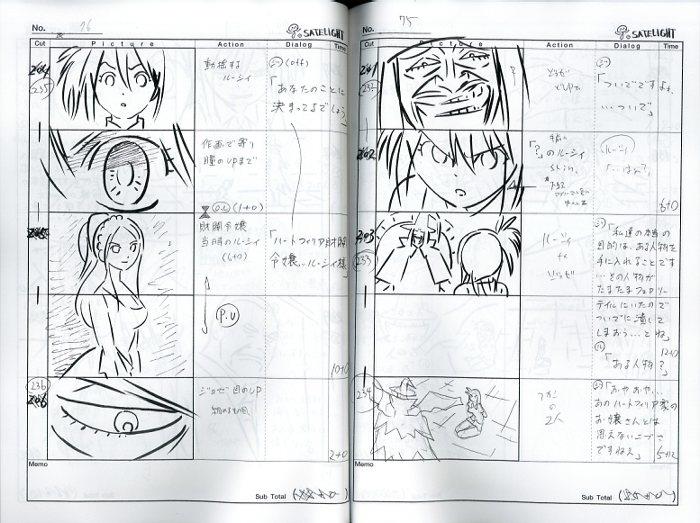 No. 76
SATELIGHT
Cut Picture Action Dialog Time
235
動揺する
ルーシィ
(off)
「あなたのことに
決まってるでしょう」
作画で寄り
瞳のUPまで
(1+0)
財閥令嬢
当時のルーシィ
(6+0)
「ハートフィリア財閥
令嬢…ルーシィ様」
P.U
10+0
236
ジョゼ 目のUP
2+0
Memo
Sub Total
No. 75
SATELIGHT
Cut Picture Action Dialog Time
「ついでですよ、
…ついで」
「?」のルーシィ
(ルーシィ)
6+0
233
ルーシィ
ジョゼ
「私達の本当の
目的は、ある人物を
手に入れることです
…その人物が
たまたまフェアリー
テイルにいたので
ついでに潰して
しまおう…とね」
12+0
「ある人物?」
234
2人
「おやおや…
あのハートフィリア家の
お嬢さんとは
思えないニブさ
ですねえ」
5+12
Memo
Sub Total